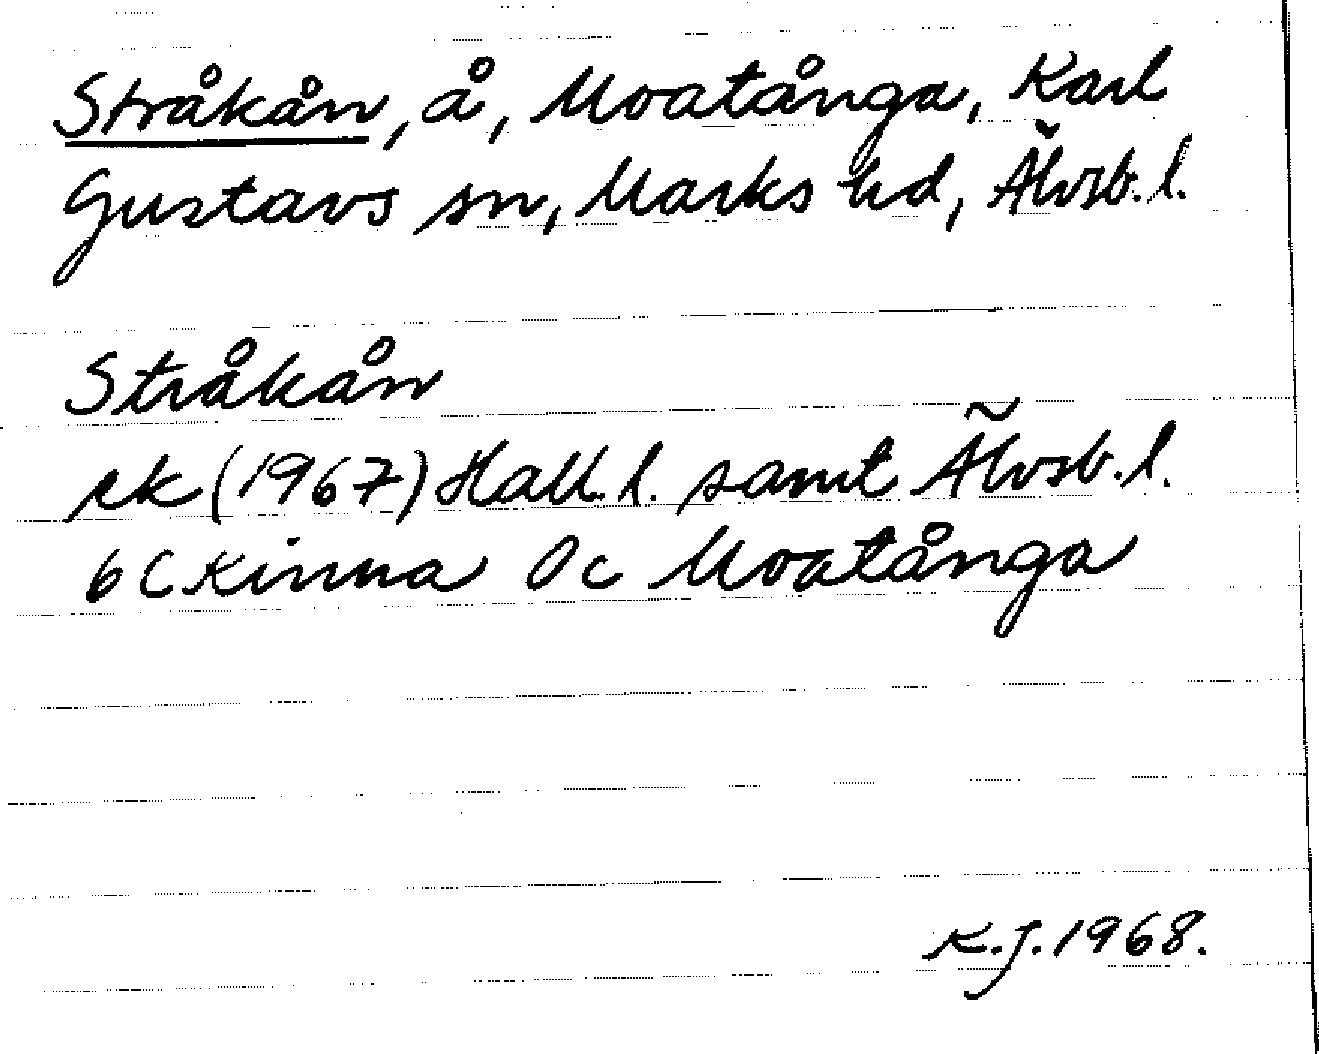 Stråkån, å, Moatånga, Karl
Gustavs sn, Marks hd, Älvsb. l.
Stråkån
ek (1967) Hall. l. samt Älvsb. l.
6 C Kinna 0 c Moatånga
K.J. 1968.